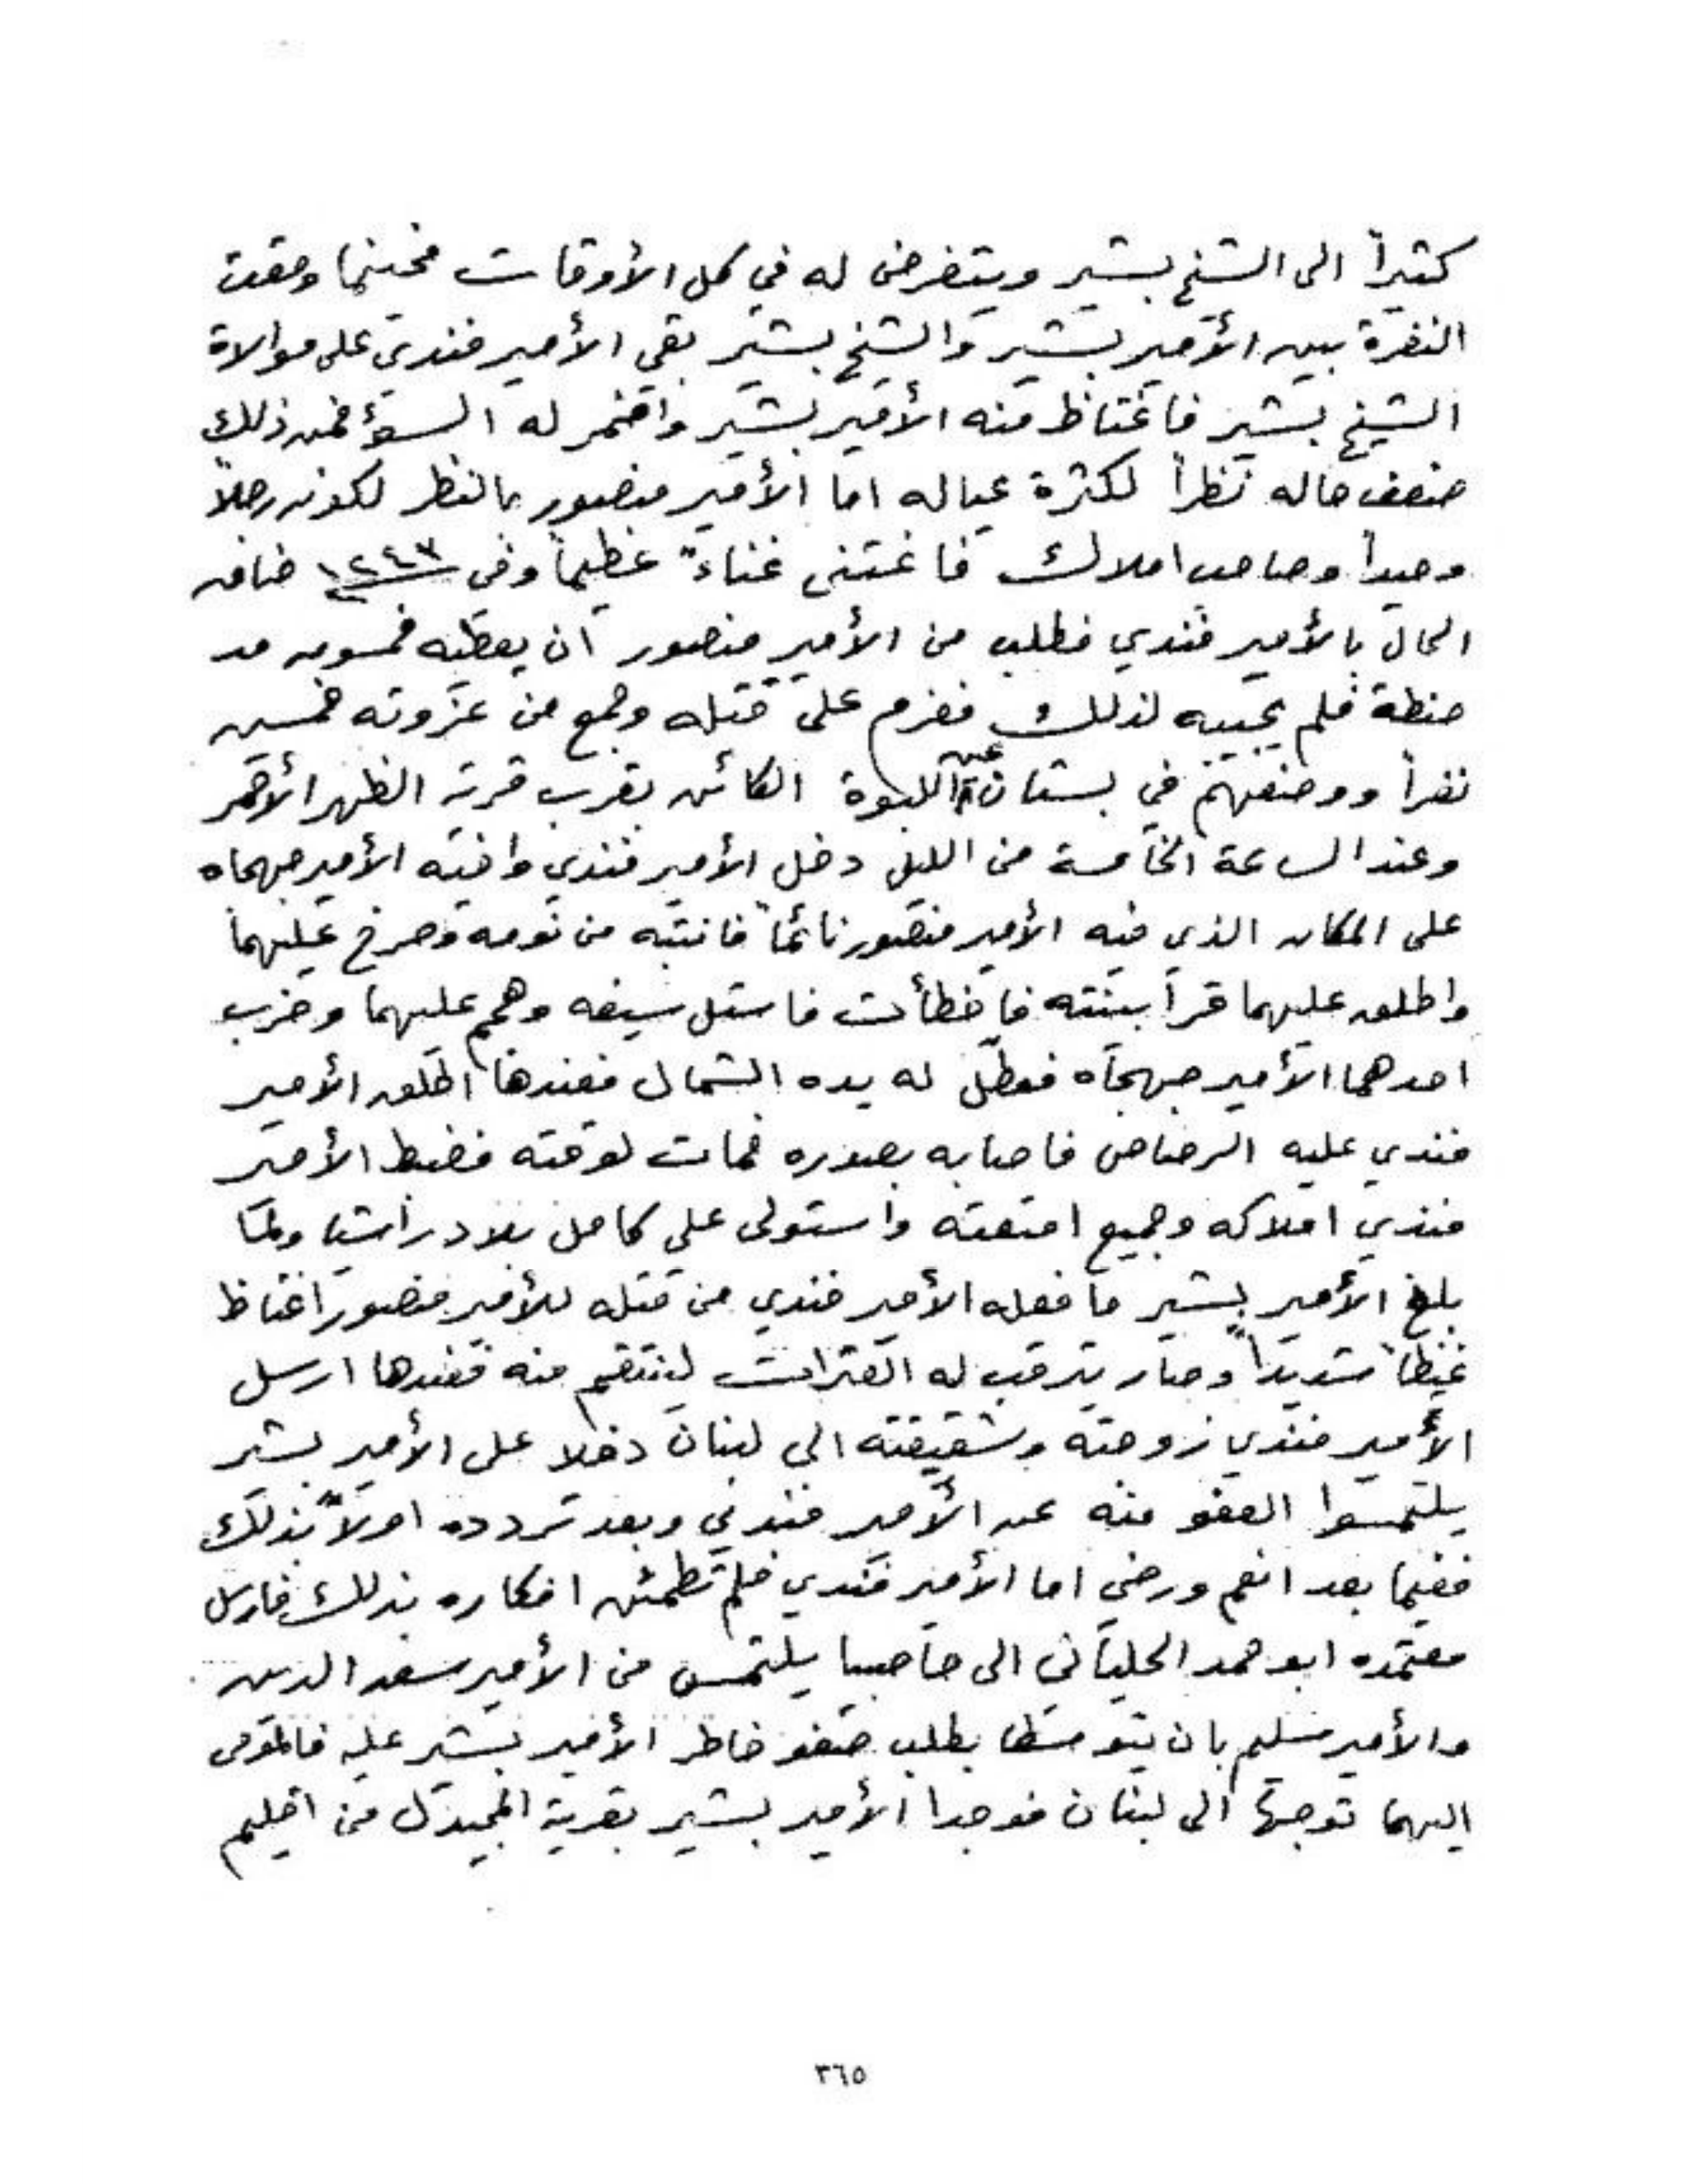 كثيراً الى الشيخ بشير ويتغرض له في كل الأوقات فحينما وقعت
النفرة بين الأمير بشير والشيخ بشير بقي الأمير فندي على موالاة
الشيخ بشير فاغتاظ منه الأمير بشير واضمر له السؤ فمن ذلك
ضعف حاله نظراً لكثرة عياله اما الأمير منصور بالنظر لكونه رجلاً
وحيداً وصاحب املاك فاغتنى غناءً عظيماً وفي ١٢٤٣ ضاق
الحال بالأمير فندي فطلب من الأمير منصور ان يعطيه خمسين مد
حنطة فلم يجيبه لذلك فعزم على قتله وجمع من عزوته خمسين
نفراً ووضعهم في بستان عين اللبوة الكائن بقرب قرية الظهر الأحمر
وعند الساعة الخامسة من الليل دخل الأمير فندي وابنه الأمير جهجاه
على المكان الذي فيه الأمير منصور نائماً فانتبه من نومه وصرخ عليهما
واطلق عليهما قرابينته فاخطأت فاستل سيفه وهجم عليهما وضرب
احدهما الأمير جهجاه فعطّل له يده الشمال فعندها اطلق الأمير
فندي عليه الرصاص فاصابه بصدره فمات لوقته فضبط الأمير
فندي املاكه وجميع امتعته واستولى على كامل بلاد راشيا ولما
بلغ الأمير بشير ما فعله الأمير فندي من قتله للأمير منصور اغتاظ
غيظاً شديداً وصار يترقب له الفترات لينتقم منه فعندها ارسل
الأمير فندي زوجته وشقيقته الى لبنان دخلا على الأمير بشير
يلتمسوا العفو منه عن الأمير فندي وبعد تردده اولاً بذلك
ففيما بعد انعم ورضي اما الأمير فندي فلم تطمئن افكاره بذلك فارسل
معتمده ابو حمد الحلياني الى حاصبيا يلتمس من الأمير سعد الدين
والأمير سليم بان يتوسطا بطلب صفو خاطر الأمير بشير عليه فالمومى
اليهما توجها الى لبنان فوجدا الأمير بشير بقرية المجيدل من اقليم
٣٦٥